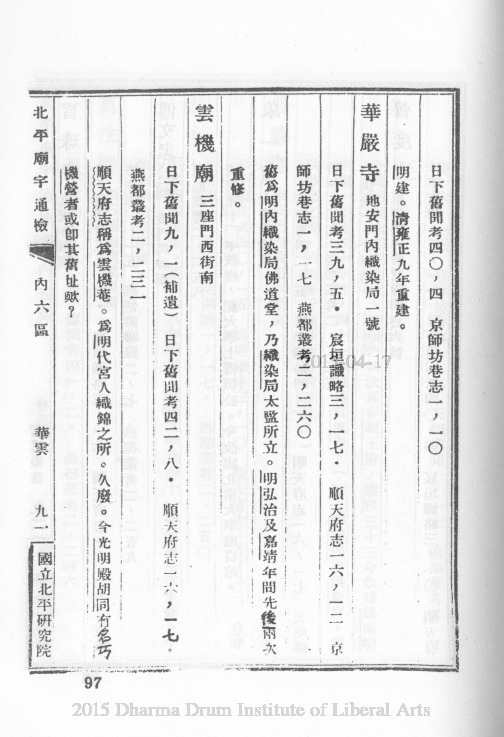 日下舊聞考四〇，四　京師坊巷志一，一〇
明建。清雍正九年重建。
華嚴寺　地安門內織染局一號
日下舊聞考三九，五・　宸垣識略三，一七・　順天府志一六，一二　京
師坊巷志一，一七　燕都叢考二，二六〇
舊爲明內織染局佛道堂，乃織染局太監所立。明弘治及嘉靖年間先後兩次
重修。
雲機廟　三座門西街南
日下舊聞九，一（補遺）　日下舊聞考四二，八・　順天府志一六，一七・
燕都叢考二，二三一
順天府志稱爲雲機菴。爲明代宮人織錦之所。久廢。今光明殿胡同有名巧
機營者或卽其舊址歟？
北平廟宇通檢　內六區　華雲　九一　國立北平研究院
97
2015-04-17
2015 Dharma Drum Institute of Liberal Arts